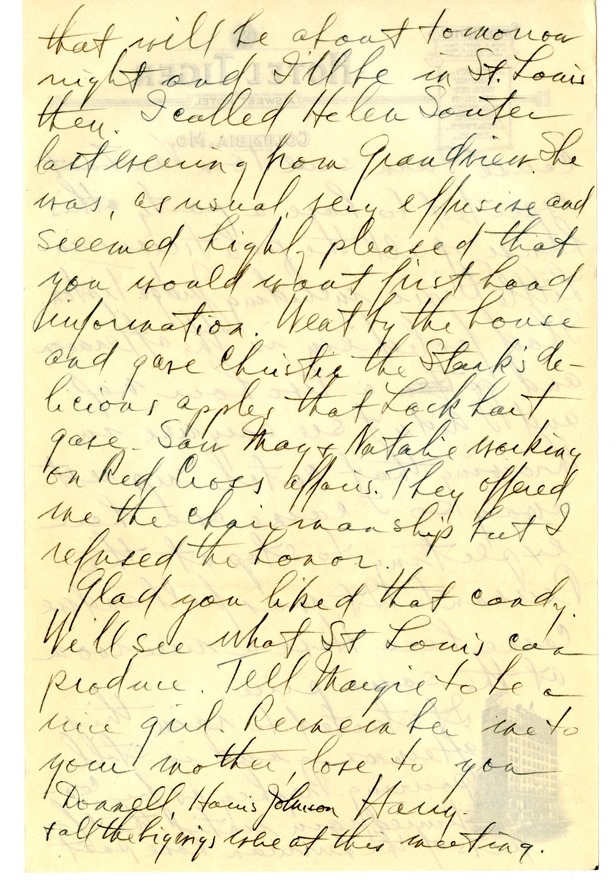 that will be about tomorrow
night and I'll be in St. Louis
then. I called Helen Souter
last evening from Grandview. She
was, as usual, very effusive and
seeemed highly pleased that
you would want first hand
information. Went by the house
and gave Christy the Stark's de-
licious apples that Lockhart
gave. Saw May & Natalie working
on Red Cross affairs. They offered
me the chairmanship but I
refused the honor.
Glad you liked that candy.
We'll see what St Louis can
produce. Tell Margie to be a
nice girl. Remember me to
your mother, love to you
Harry.
Donnell, Harris Johnson
& all the bigwigs were at this meeting.
HOTEL TIGER
COLUMBIA, MO.